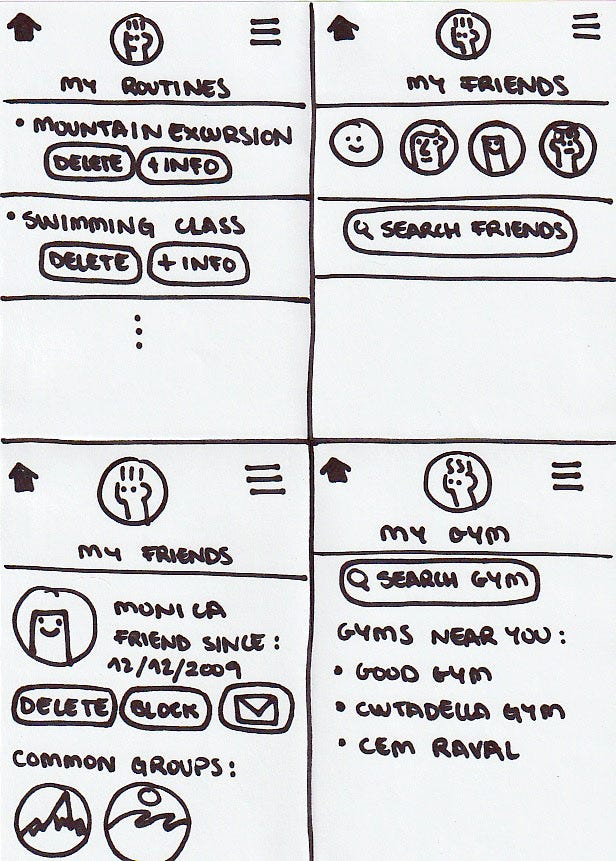 MY ROUTINES
• MOUNTAIN EXCURSION
DELETE + INFO
• SWIMMING CLASS
DELETE + INFO
MY FRIENDS
SEARCH FRIENDS
MY FRIENDS
MONICA
FRIEND SINCE:
12/12/2009
DELETE BLOCK
COMMON GROUPS:
MY GYM
SEARCH GYM
GYMS NEAR YOU:
• GOOD GYM
• CIUTADELLA GYM
• CEM RAVAL